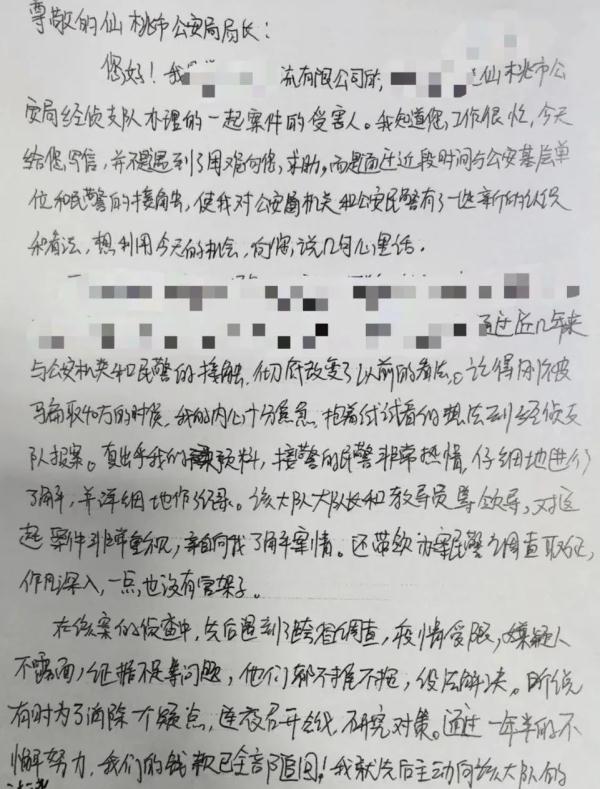 尊敬的仙桃市公安局局长：
您好！我 流有限公司的 是仙桃市公
安局经侦支队办理的一起案件的受害人。我知道您工作很忙，今天
给您写信，并不是遇到了困难向您求助，而是通过近段时间与公安基层单
位和民警的接触，使我对公安机关和公安民警有了一些新的认识
和看法，想利用今天的机会，向您说几句心里话。
通过近几年来
与公安机关和民警的接触，彻底改变了以前的看法。记得刚被
骗取40万的时候，我的内心十分焦急，抱着试试看的想法到经侦支
队报案。真出乎我的预料，接警的民警非常热情，仔细地进行
了解，并详细地作了记录。该大队大队长和教导员等领导，对这
起案件非常重视，亲自向我了解案情。还带领办案民警调查取证，
作风深入，一点也没有官架子。
在该案的侦查中，先后遇到了跨省调查，疫情受限，嫌疑人
不露面，证据不足等问题，他们都不推不拖，设法解决。听说
有时为了消除一个疑点，连夜召开会议，研究对策。通过一年半的不
懈努力，我们的钱款已全部追回！我就先后主动向该大队的